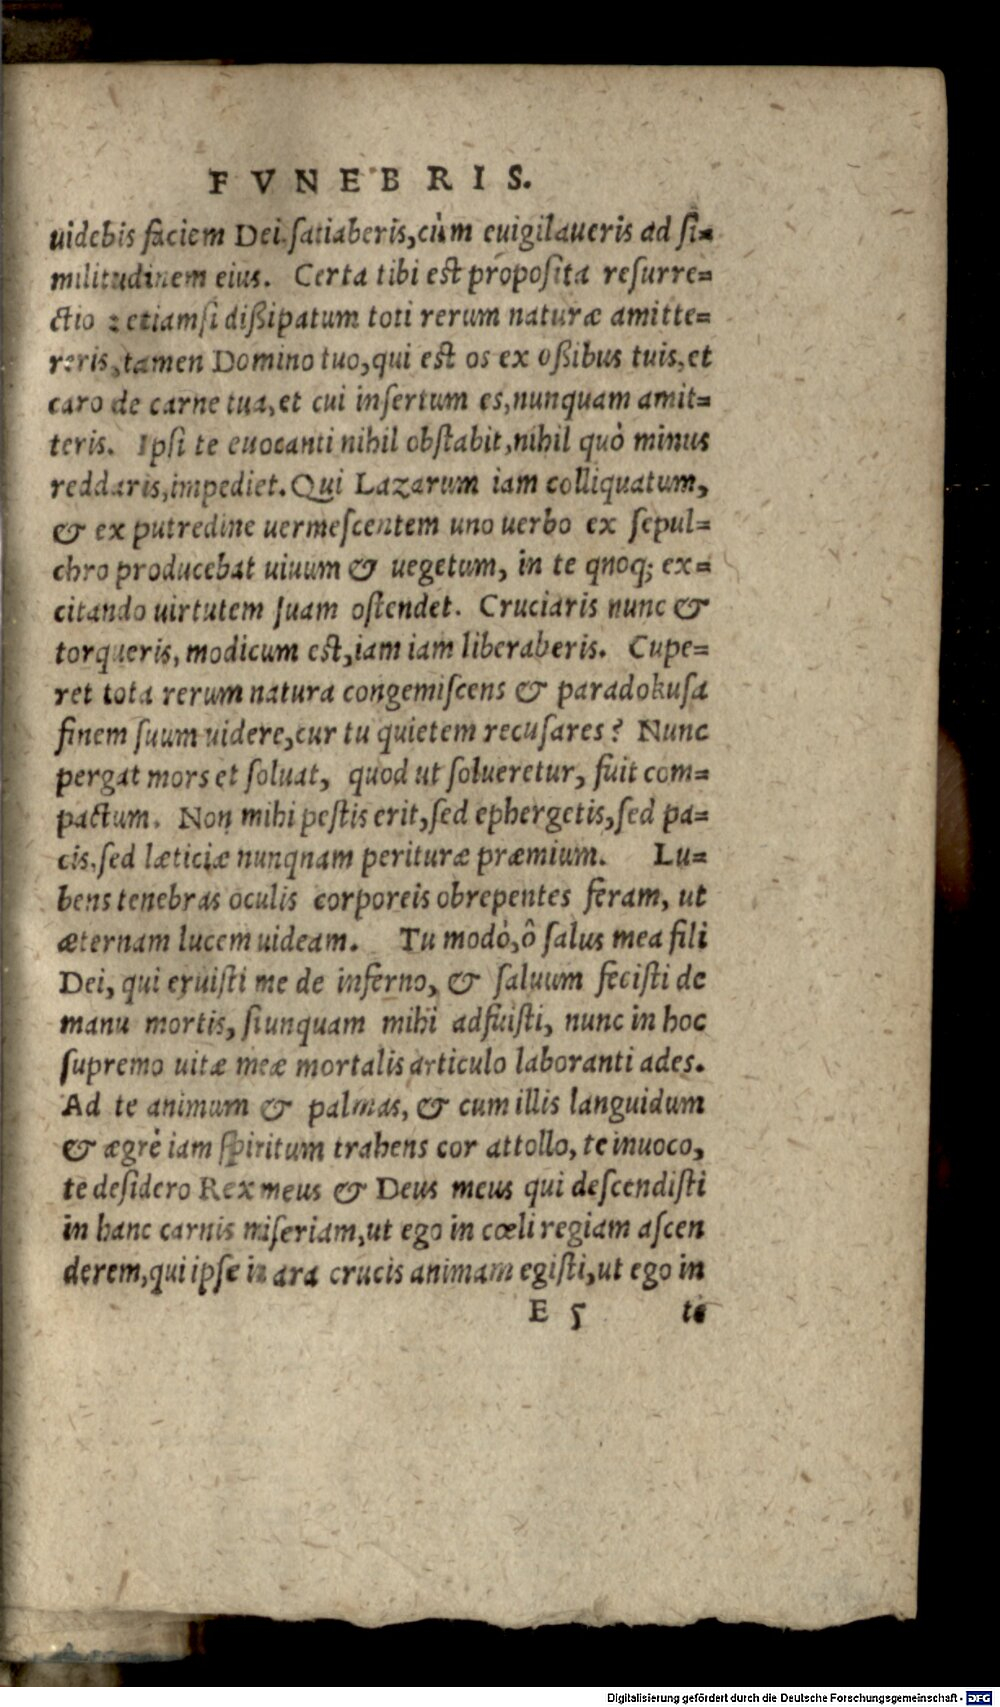 FVNEBRIS.
uidebis faciem Dei. satiaberis, cùm euigilaueris ad si=
militudinem eius. Certa tibi est proposita resurre=
ctio : etiamsi dißipatum toti rerum naturæ amitte=
reris, tamen Domino tuo, qui est os ex oßibus tuis, et
caro de carne tua, et cui insertum es, nunquam amit=
teris. Ipsi te euocanti nihil obstabit, nihil quò minus
reddaris, impediet. Qui Lazarum iam colliquatum,
& ex putredine uermescentem uno uerbo ex sepul=
chro producebat uiuum & uegetum, in te qnoq; ex=
citando uirtutem suam ostendet. Cruciaris nunc &
torqueris, modicum est, iam iam liberaberis. Cupe=
ret tota rerum natura congemiscens & paradokusa
finem suum uidere, cur tu quietem recusares? Nunc
pergat mors et soluat, quod ut solueretur, fuit com=
pactum. Non mihi pestis erit, sed ephergetis, sed pa=
cis, sed læticiæ nunqnam perituræ præmium. Lu=
bens tenebras oculis corporeis obrepentes feram, ut
æternam lucem uideam. Tu modò, ô salus mea fili
Dei, qui eruisti me de inferno, & saluum fecisti de
manu mortis, siunquam mihi adfuisti, nunc in hoc
supremo uitæ meæ mortalis articulo laboranti ades.
Ad te animum & palmas, & cum illis languidum
& ægrè iam spiritum trahens cor attollo, te inuoco,
te desidero Rex meus & Deus meus qui descendisti
in hanc carnis miseriam, ut ego in cœli regiam ascen
derem, qui ipse in ara crucis animam egisti, ut ego in
E 5 te
Digitalisierung gefördert durch die Deutsche Forschungsgemeinschaft - DFG